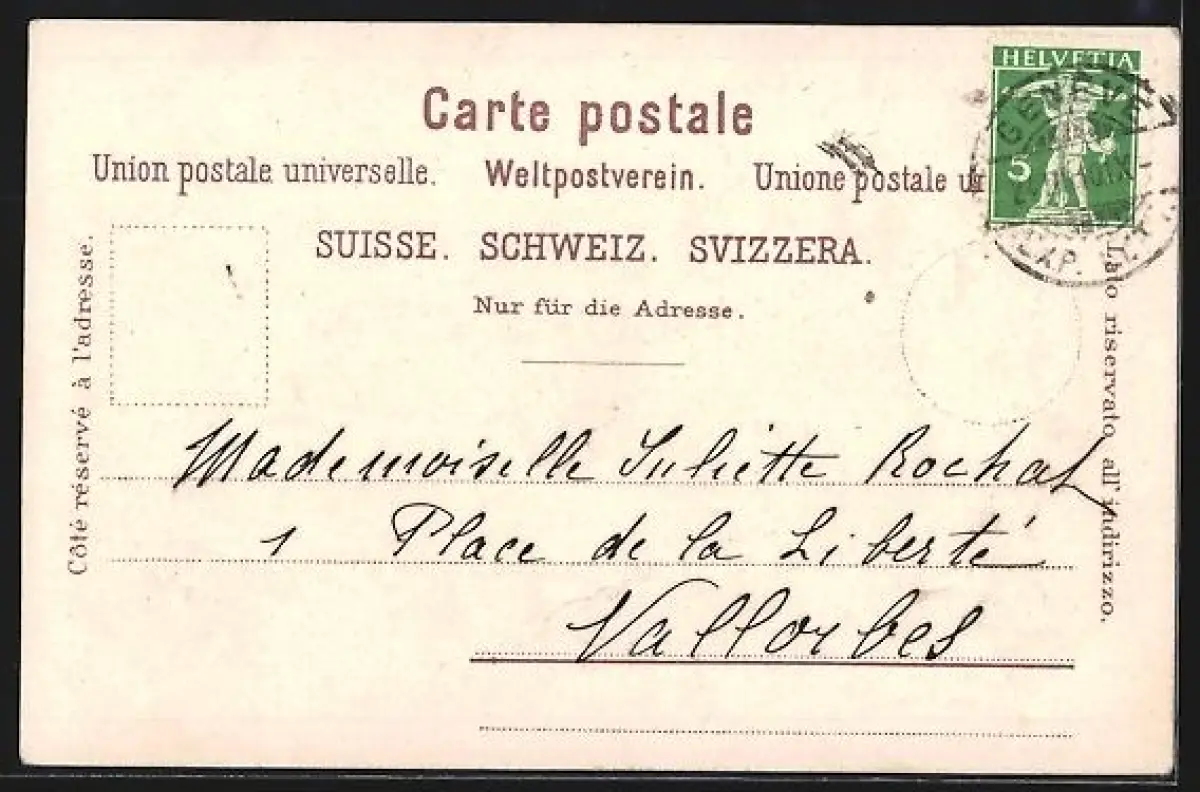 Carte postale
Union postale universelle. Weltpostverein. Unione postale un
SUISSE. SCHWEIZ. SVIZZERA.
Nur für die Adresse.
HELVETIA
5
GENÈVE
EXP. LETT
Côté réservé à l'adresse.
Lato riservato all'indirizzo.
Mademoiselle Juliette Rochat
1 Place de la Liberté
Vallorbes